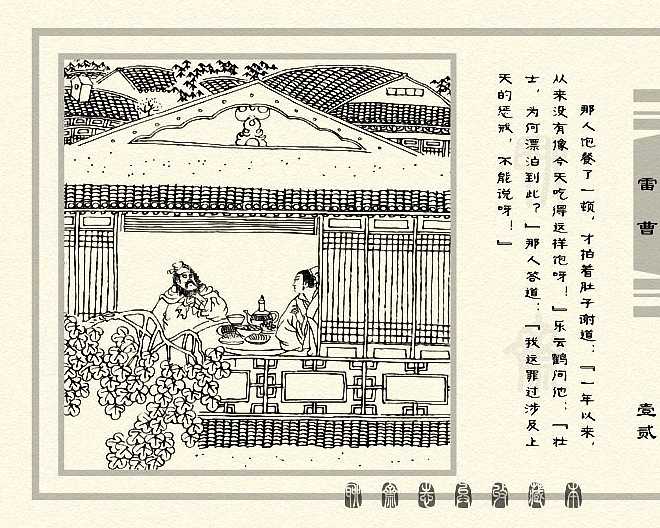 那人饱餐了一顿，才拍着肚子谢道：『一年以来，
从来没有像今天吃得这样饱呀！』乐云鹤问他：『壮
士，为何漂泊到此？』那人答道：『我这罪过涉及上
天的惩戒，不能说呀！』
雷曹
壹贰